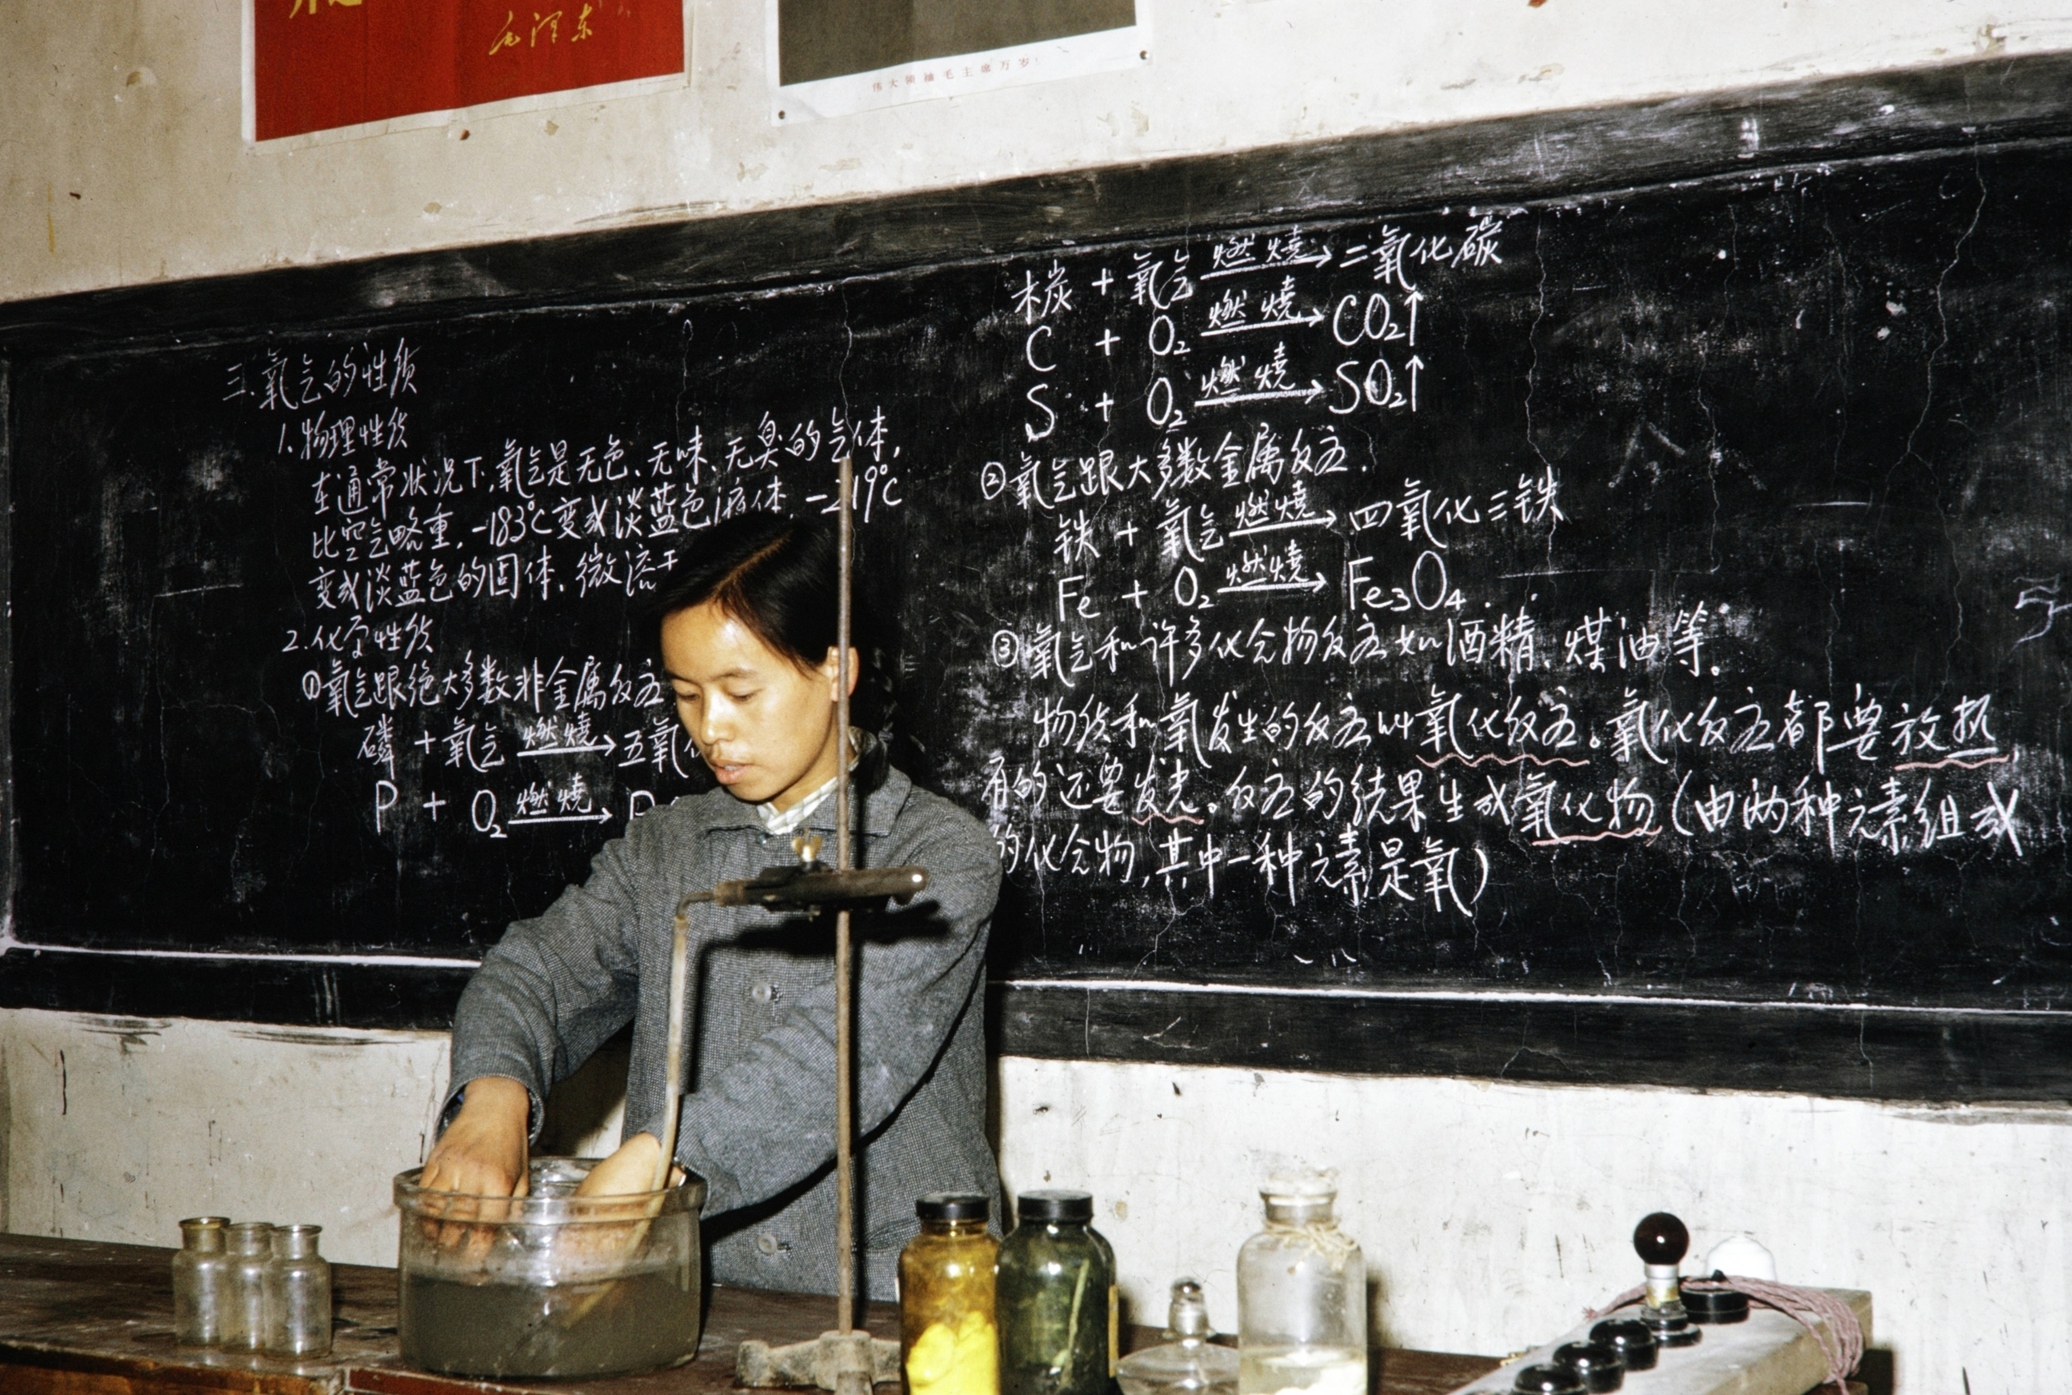 毛泽东
伟大领袖毛主席万岁!
三.氧气的性质
1.物理性质
在通常状况下,氧气是无色、无味、无臭的气体,
比空气略重,-183℃变成淡蓝色液体,-219℃
变成淡蓝色的固体,微溶于
2.化学性质
①氧气跟绝大多数非金属反应
磷 + 氧气 燃燒→ 五氧化
P + O₂ 燃燒→
木炭 + 氧气 燃燒→ 二氧化碳
C + O₂ 燃燒→ CO₂↑
S + O₂ 燃燒→ SO₂↑
②氧气跟大多数金属反应.
铁 + 氧气 燃燒→ 四氧化三铁
Fe + O₂ 燃燒→ Fe₃O₄.
③氧气和许多化合物反应如酒精、煤油等.
物质和氧发生的反应叫氧化反应。氧化反应都要放热
有的还要发光。反应的结果生成氧化物(由两种元素组成
的化合物,其中一种元素是氧)